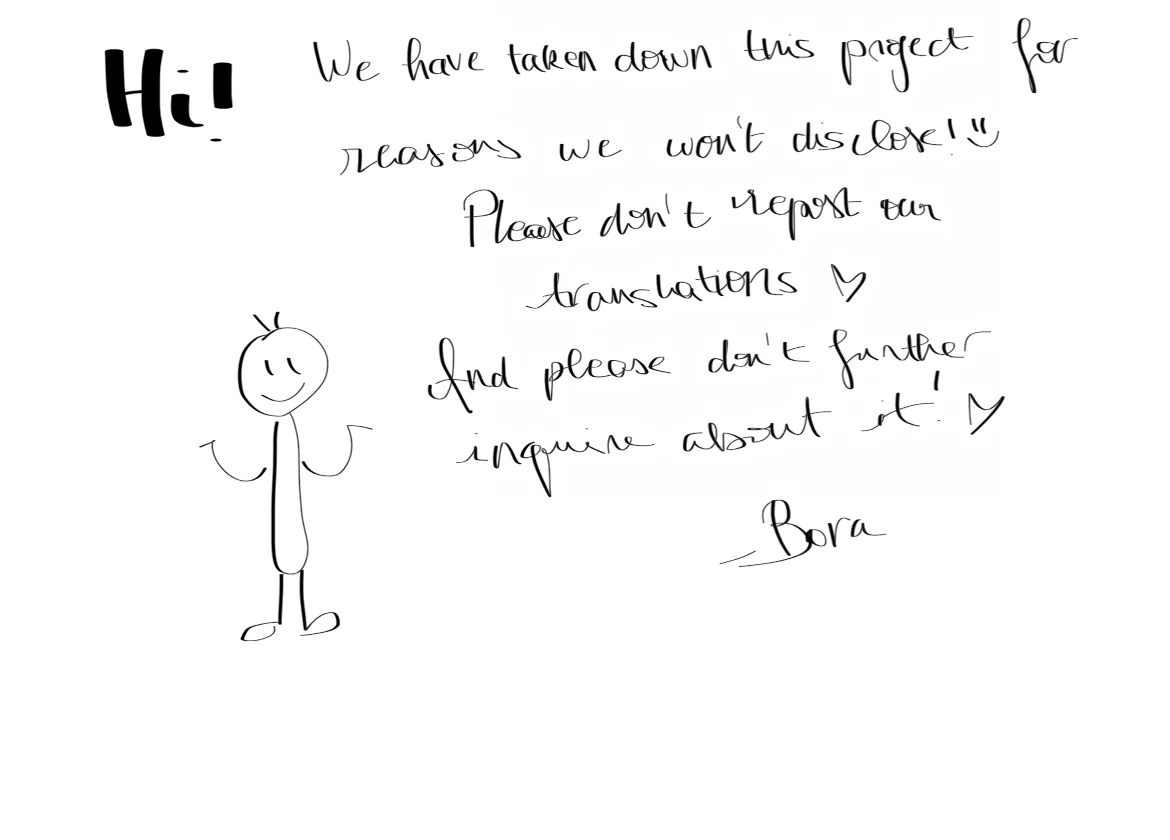 Hi!
We have taken down this project for
reasons we won't disclose!
Please don't repost our
translations
And please don't further
inquire about it!
_Bora